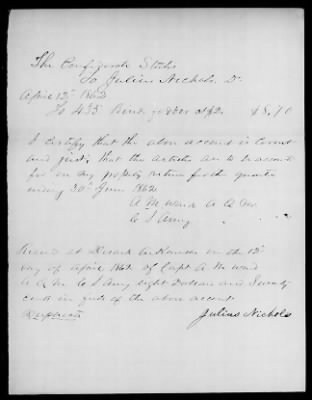 The Confederate States
To Julius Nichols Dr
April 12th 1862
To 435 fodder at $2 $8.70
I certify that the above account is correct
and just, that the articles are to be account
for on my property return for the quarter
ending 30th June 1862
A M Ward A Q M
C S Army
Recd at Arkansas on the 12th
day of April 1862 of Capt A M Ward
A Q M C S Army eight Dollars and Seventy
cents in full of the above account
Duplicate
Julius Nichols